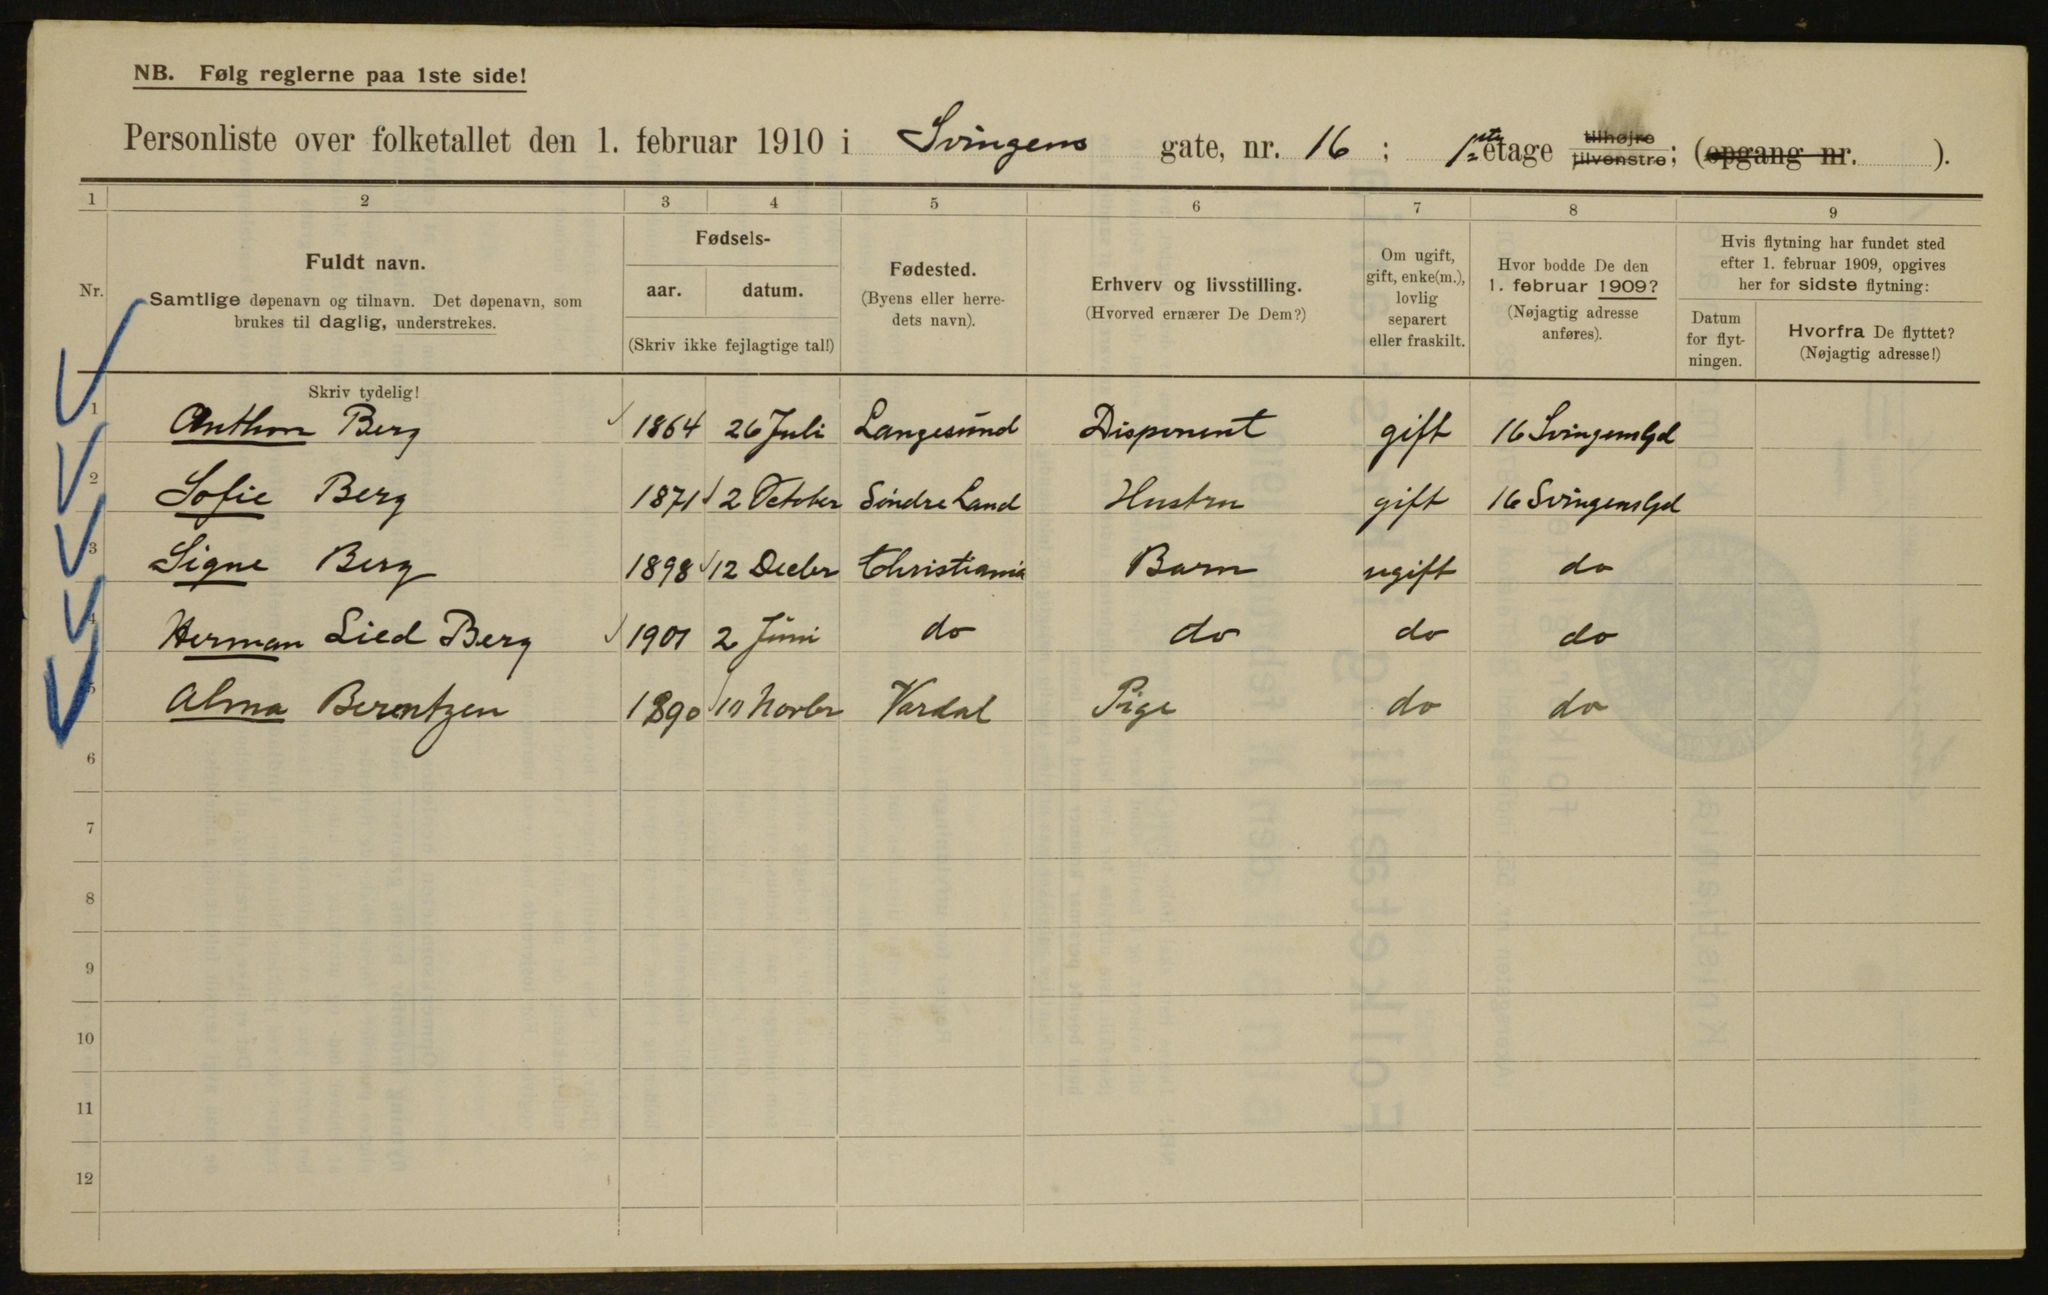 NB. Følg reglerne paa 1ste side!
Personliste over folketallet den 1. februar 1910 i Svingens gate, nr. 16 ; 1ste etage tilhøjre tilvenstre; (opgang nr. ).
1 2 3 4 5 6 7 8 9
Nr.
Fuldt navn.
Samtlige døpenavn og tilnavn. Det døpenavn, som
brukes til daglig, understrekes.
Fødsels-
aar. datum.
(Skriv ikke fejlagtige tal!)
Fødested.
(Byens eller herre-
dets navn).
Erhverv og livsstilling.
(Hvorved ernærer De Dem?)
Om ugift,
gift, enke(m.),
lovlig
separert
eller fraskilt.
Hvor bodde De den
1. februar 1909?
(Nøjagtig adresse
anføres).
Hvis flytning har fundet sted
efter 1. februar 1909, opgives
her for sidste flytning:
Datum
for flyt-
ningen.
Hvorfra De flyttet?
(Nøjagtig adresse!)
Skriv tydelig!
1 Anthon Berg 1864 26 Juli Langesund Disponent gift 16 Svingensgd
2 Sofie Berg 1871 2 October Söndre Land Hustru gift 16 Svingensgd
3 Signe Berg 1898 12 Decbr Christiania Barn ugift do
4 Herman Lied Berg 1901 2 Juni do do do do
5 Alma Berentzen 1890 10 Novbr Vardal Pige do do
6
7
8
9
10
11
12